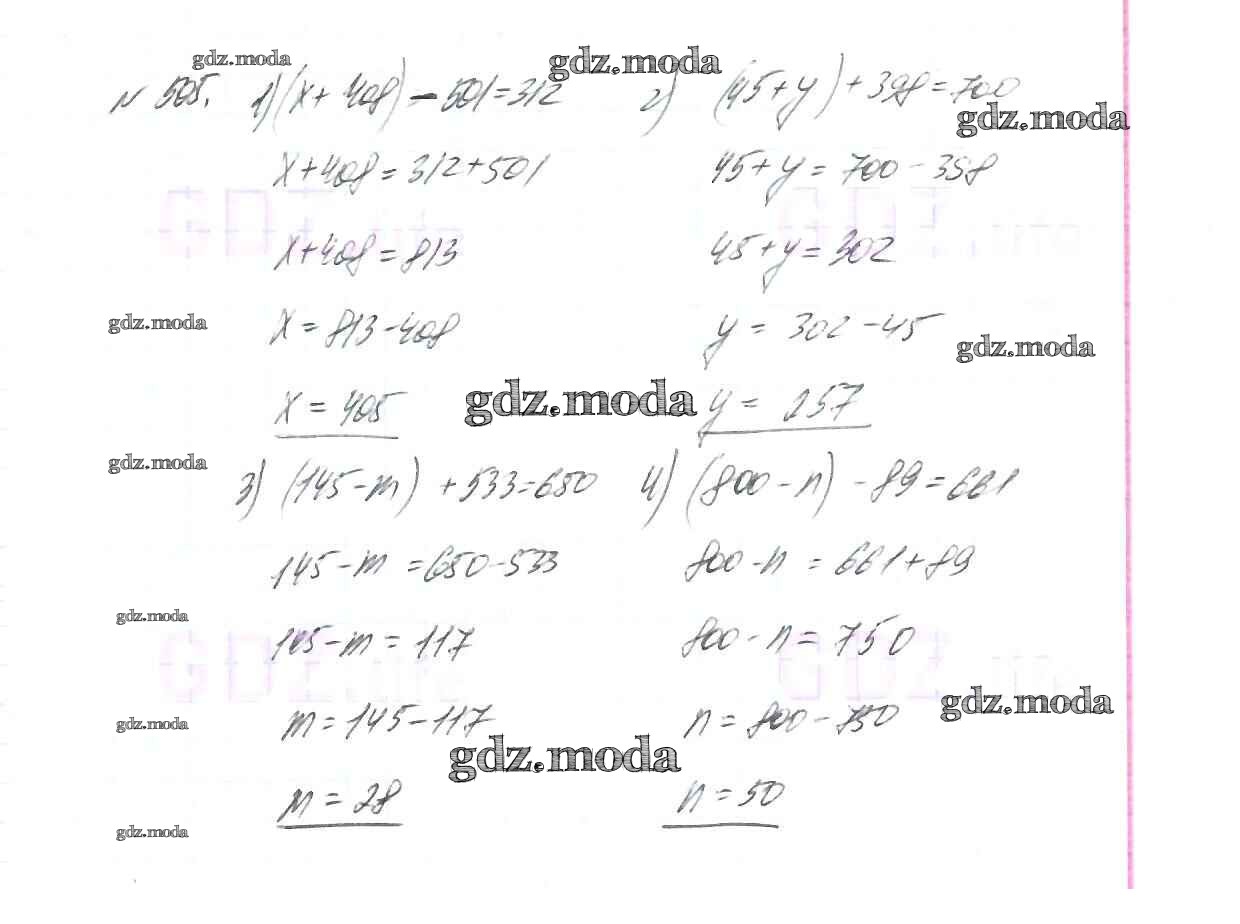 gdz.moda gdz.moda
№ 505. 1) (x + 408) - 501 = 312 2) (45 + y) + 398 = 700
gdz.moda
x + 408 = 312 + 501 45 + y = 700 - 398
x + 408 = 813 45 + y = 302
gdz.moda x = 813 - 408 y = 302 - 45
gdz.moda
x = 405 gdz.moda y = 257
gdz.moda 3) (145 - m) + 533 = 650 4) (800 - n) - 89 = 661
145 - m = 650 - 533 800 - n = 661 + 89
gdz.moda
145 - m = 117 800 - n = 750
gdz.moda m = 145 - 117 n = 800 - 750 gdz.moda
gdz.moda
m = 28 n = 50
gdz.moda